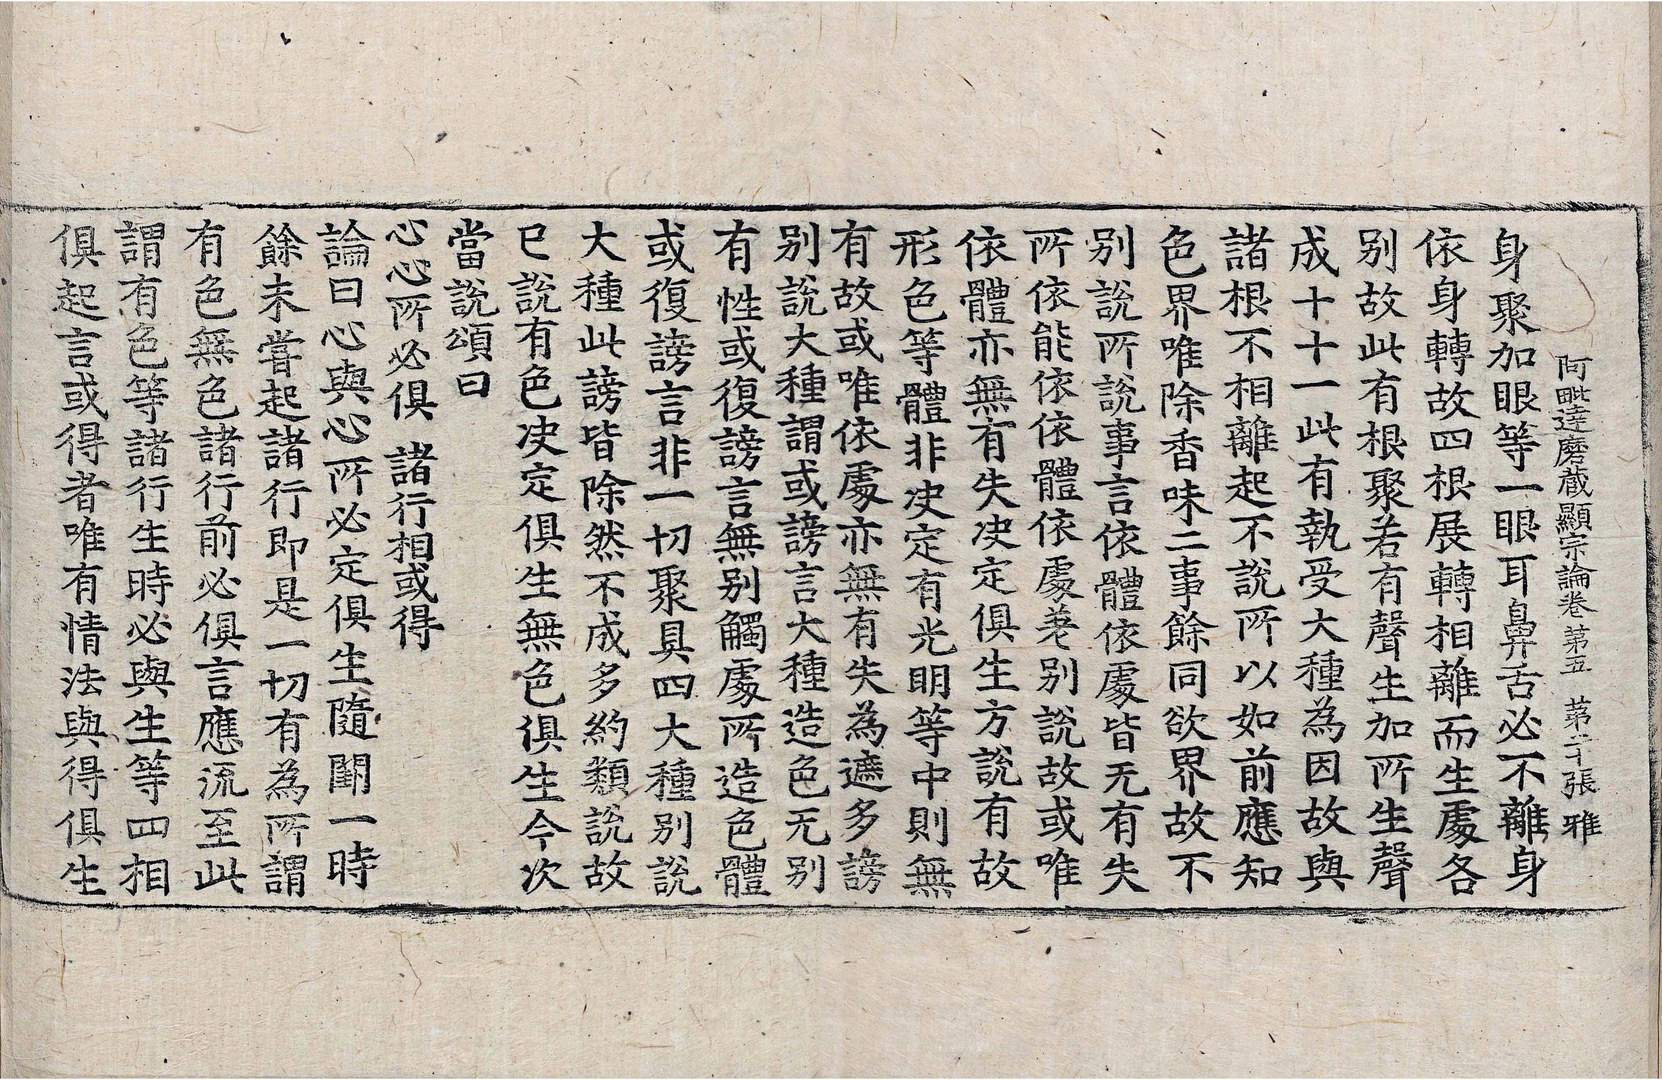 阿毗達磨藏顯宗論卷第五 第二十張 雅
身聚加眼等一眼耳鼻舌必不離身
依身轉故四根展轉相離而生處各
別故此有根聚若有聲生加所生聲
成十十一此有執受大種為因故與
諸根不相離起不說所以如前應知
色界唯除香味二事餘同欲界故不
別說所說事言依體依處皆无有失
所依能依依體依處差別說故或唯
依體亦無有失决定俱生方說有故
形色等體非决定有光明等中則無
有故或唯依處亦無有失為遮多謗
別說大種謂或謗言大種造色无別
有性或復謗言無別觸處所造色體
或復謗言非一切聚具四大種別說
大種此謗皆除然不成多約類說故
已說有色决定俱生無色俱生今次
當說頌曰
心心所必俱 諸行相或得
論曰心與心所必定俱生隨闕一時
餘未嘗起諸行即是一切有為所謂
有色無色諸行前必俱言應流至此
謂有色等諸行生時必與生等四相
俱起言或得者唯有情法與得俱生